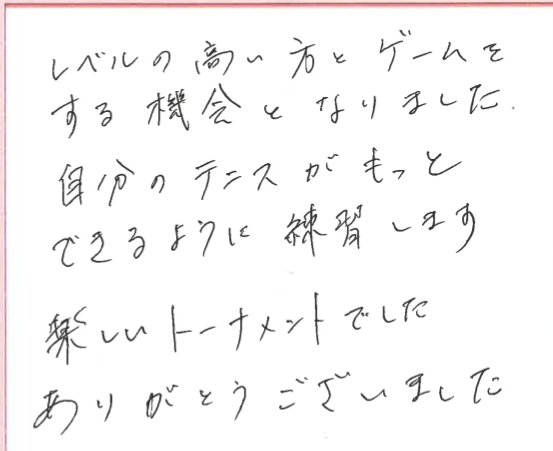 レベルの高い方とゲームを
する機会となりました.
自分のテニスがもっと
できるように練習します
楽しいトーナメントでした
ありがとうございました